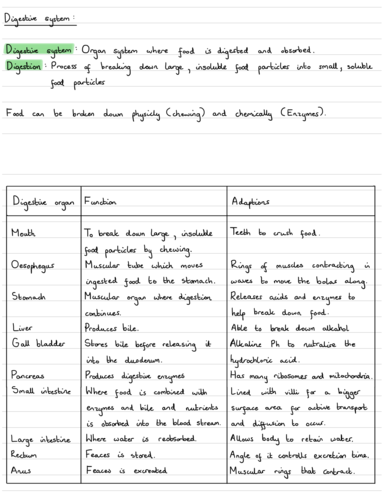 Digestive system:
Digestive system: Organ system where food is digested and absorbed.
Digestion: Process of breaking down large, insoluble food particles into small, soluble
food particles
Food can be broken down physicly (chewing) and chemically (Enzymes).
Digestive organ Function Adaptions
Mouth To break down large, insoluble Teeth to crush food.
food particles by chewing.
Oesophagus Muscular tube which moves Rings of muscles contracting in
ingested food to the stomach. waves to move the bolas along.
Stomach Muscular organ where digestion Releases acids and enzymes to
continues. help break down food.
Liver Produces bile. Able to break down alkohol
Gall bladder Stores bile before releasing it Alkaline Ph to nutralise the
into the duodenum. hydrochloric acid.
Pancreas Produces digestive enzymes Has many ribosomes and mitochondria.
Small intestine Where food is combined with Lined with villi for a bigger
enzymes and bile and nutrients surface area for active transport
is absorbed into the blood stream. and diffusion to occur.
Large intestine Where water is reabsorbed. Allows body to retain water.
Rectum Feaces is stored. Angle of it controlls excreation time.
Anus Feaces is excreated Muscular rings that contract.